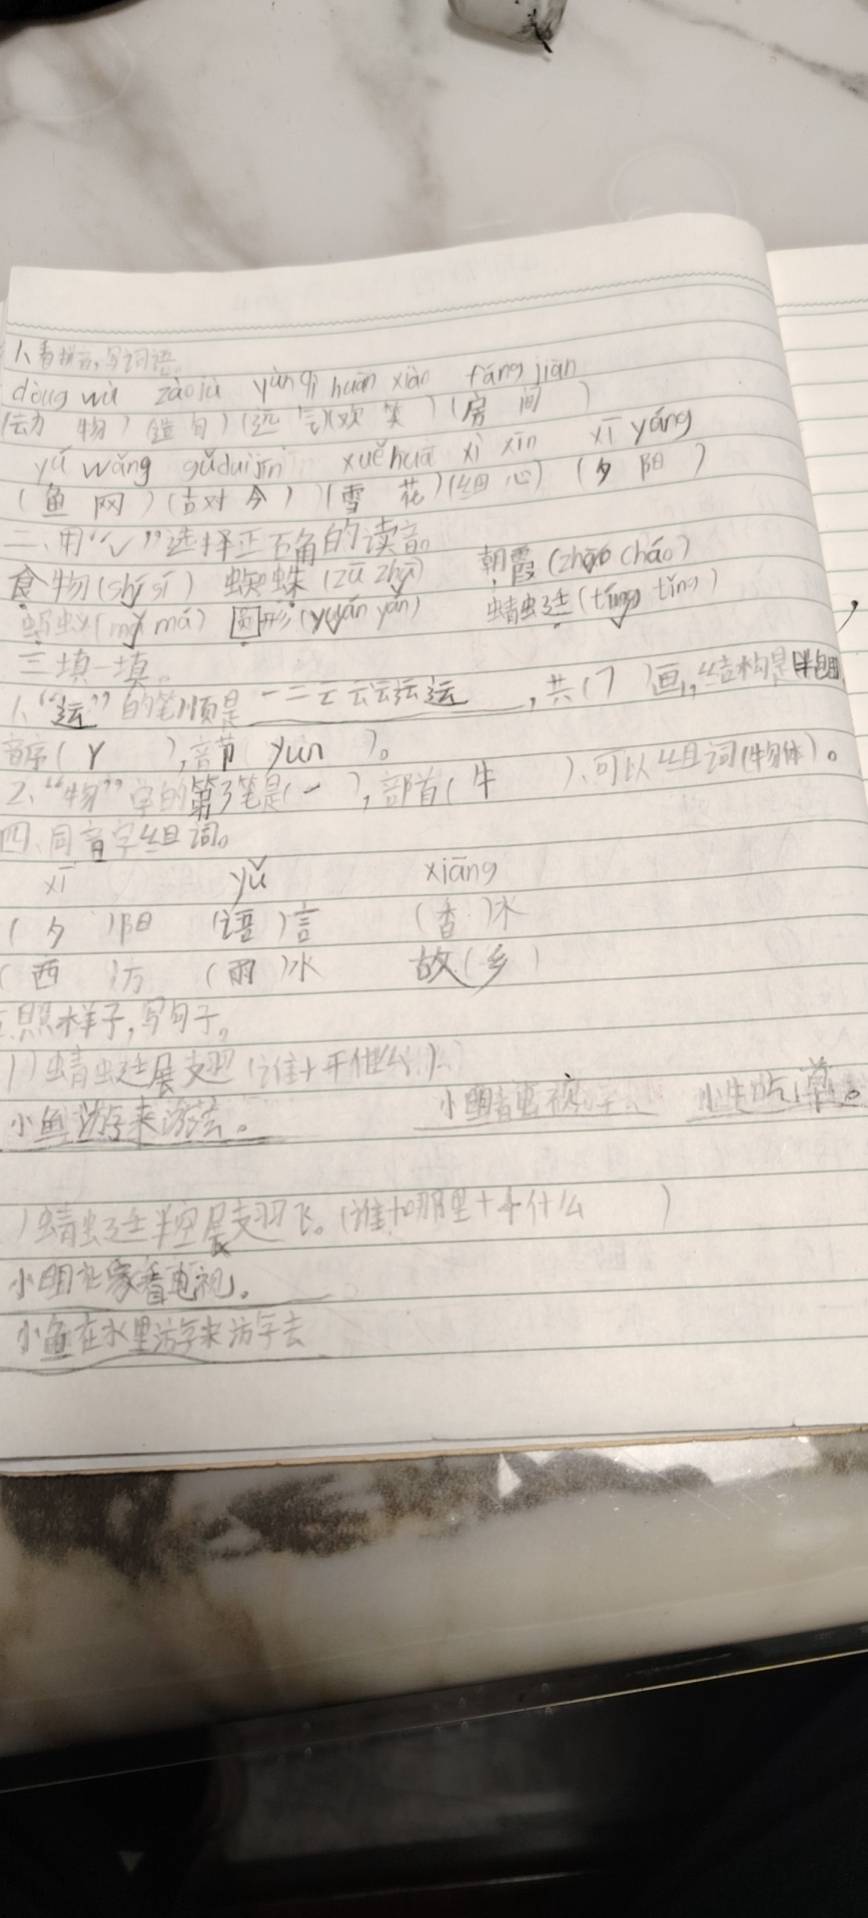 1、看拼音,写词语。
dòng wù zào jù yùn qì huān xiào fáng jiān
(动 物)(造 句)(运 气)(欢 笑)(房 间)
yú wǎng gǔ duì jīn xuě huā xì xīn xī yáng
(鱼 网)(古 对 今)(雪 花)(细 心)(夕 阳)
二、用“√”选择正确的读音。
食物(shí sí) 蜘蛛(zū zhū) 朝霞(zhāo cháo)
蚂蚁(mǎ má) 圆形(yuán yán) 蜻蜓(tíng tīng)
三、填一填。
1、“运”的笔顺是 一二テ云云运运 ,共(7)画,结构是半包围
音序(Y),音节(yùn)。
2、“物”字的第3笔是(一),部首(牛),可以组词(物体)。
四、同音字组词。
xī yǔ xiāng
(夕)阳 (语)言 (香)水
(西)方 (雨)水 故(乡)
五、照样子,写句子。
1)蜻蜓展翅(谁+干什么)。
小鱼游来游去。 小明看电视 小牛吃草。
)蜻蜓半空展翅飞。(谁+哪里+干什么)
小明在家看电视。
小鱼在水里游来游去